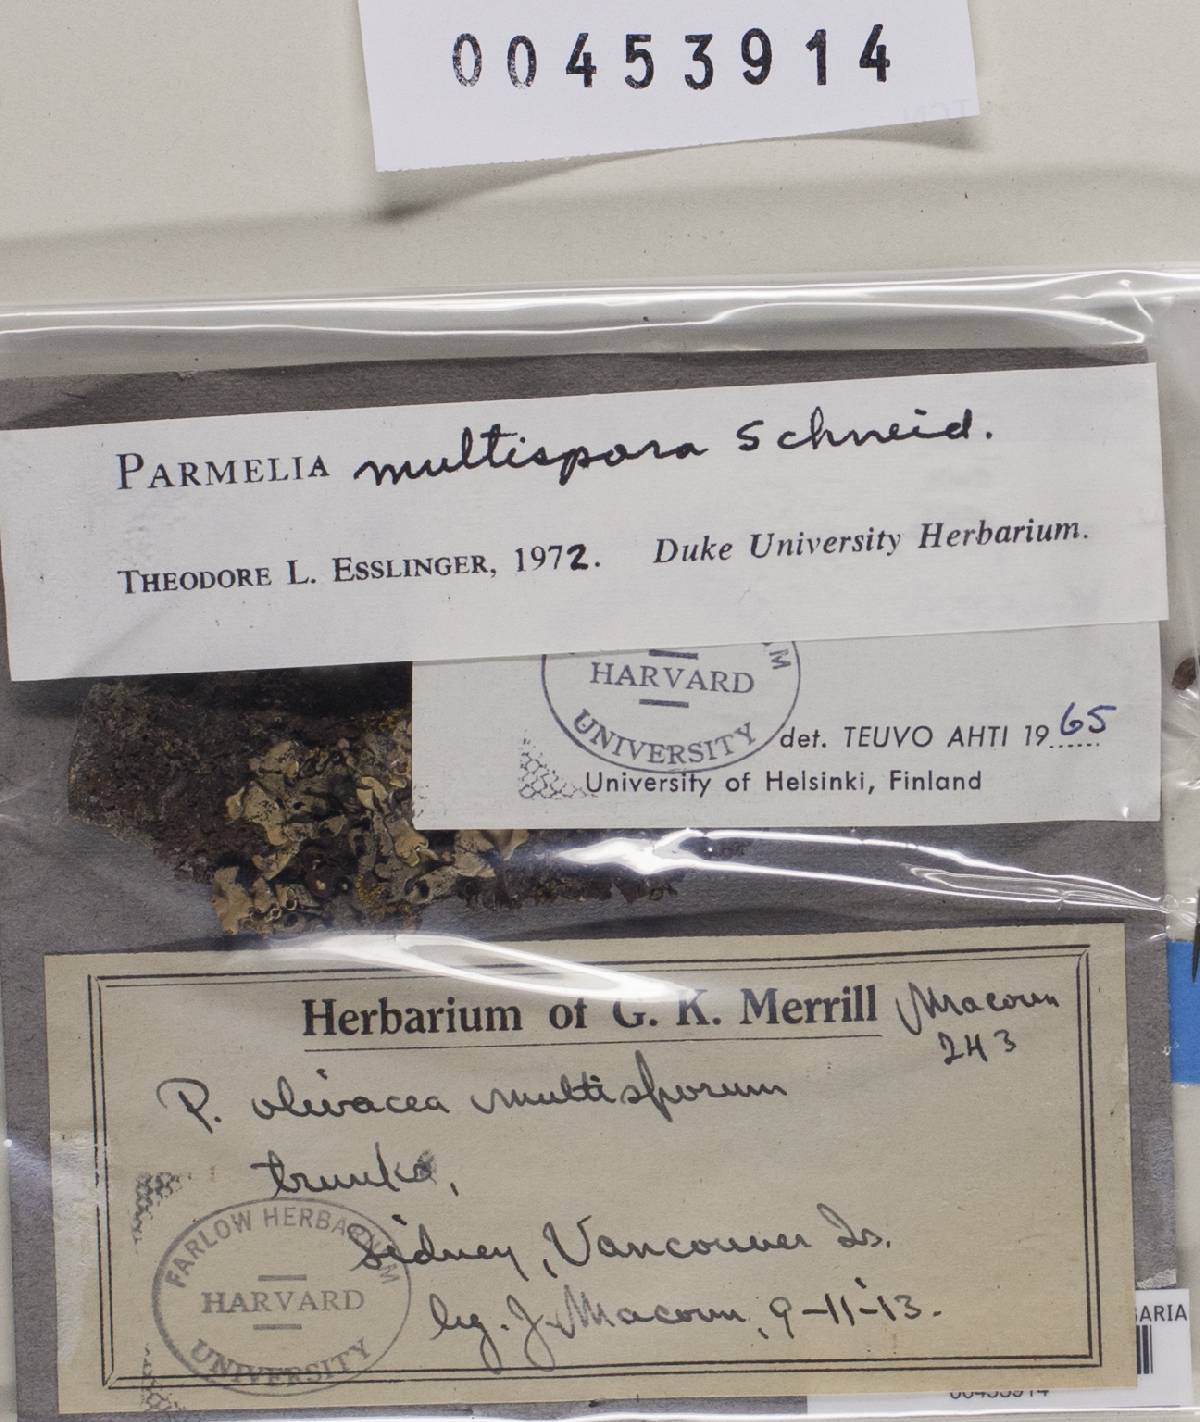 00453914
PARMELIA multispora Schneid.
THEODORE L. ESSLINGER, 1972. Duke University Herbarium.
HARVARD
UNIVERSITY
det. TEUVO AHTI 1965
University of Helsinki, Finland
Herbarium of G. K. Merrill
Macoun
243
P. olivacea multisporum
trunks,
Sidney, Vancouver Is.
leg. J. Macoun, 9-11-13.
FARLOW HERBARIUM
HARVARD
UNIVERSITY
ARIA
00453914